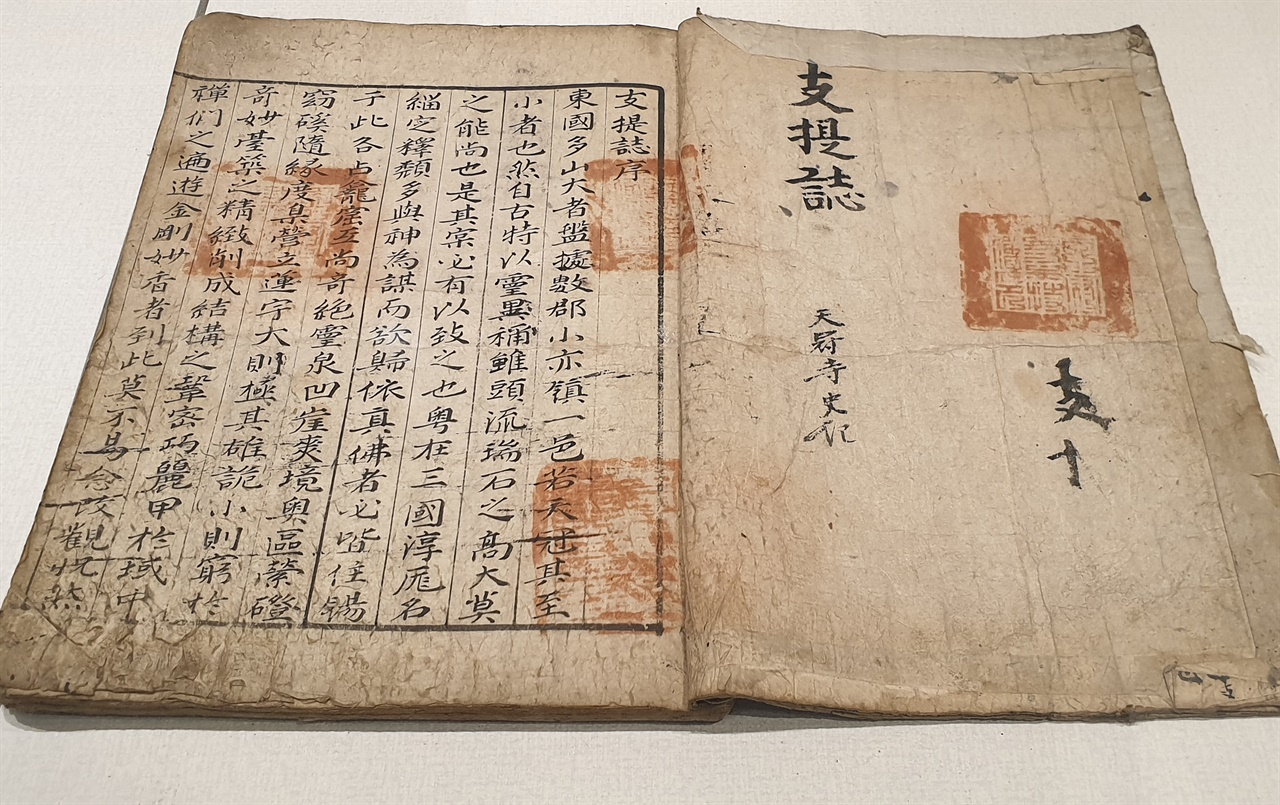 支提誌
天冠寺史記
支十
支提誌序
東國多山大者盤據數郡小亦鎮一邑若天冠其至
小者也然自古特以靈異稱雖頭流瑞石之高大莫
之能尚也是其宲必有以致之也粤在三國淳厖名
緇宏釋類多與神為謀而欲歸依真佛者必皆住錫
于此各占龕窟互尚奇絕靈泉凹崖爽境奧區縈磴
窈磎隨緣度臬營立蓮宇大則極其雄詭小則窮於
奇妙臺築之精緻削成結構之鞏密巧麗甲於域中
禪們之遍遊金剛妙香者到此莫不易念改觀怳然